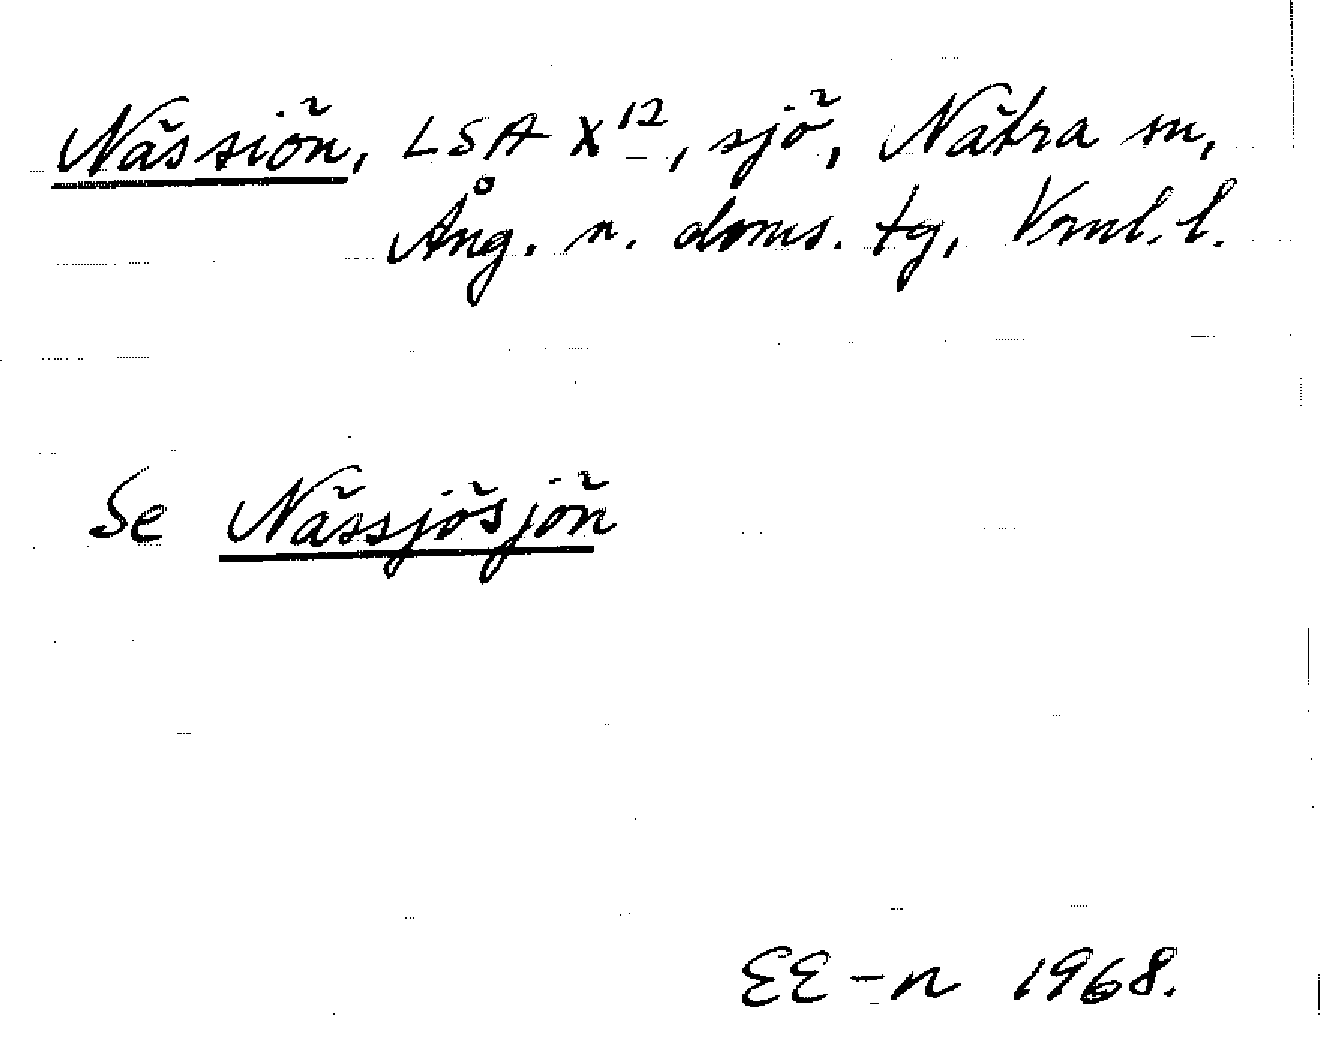 Nässiön, LSA X12, sjö, Nätra sn,
Ång. n. doms. tg, Vrnl. l.
Se Nässjösjön
EE-n 1968.